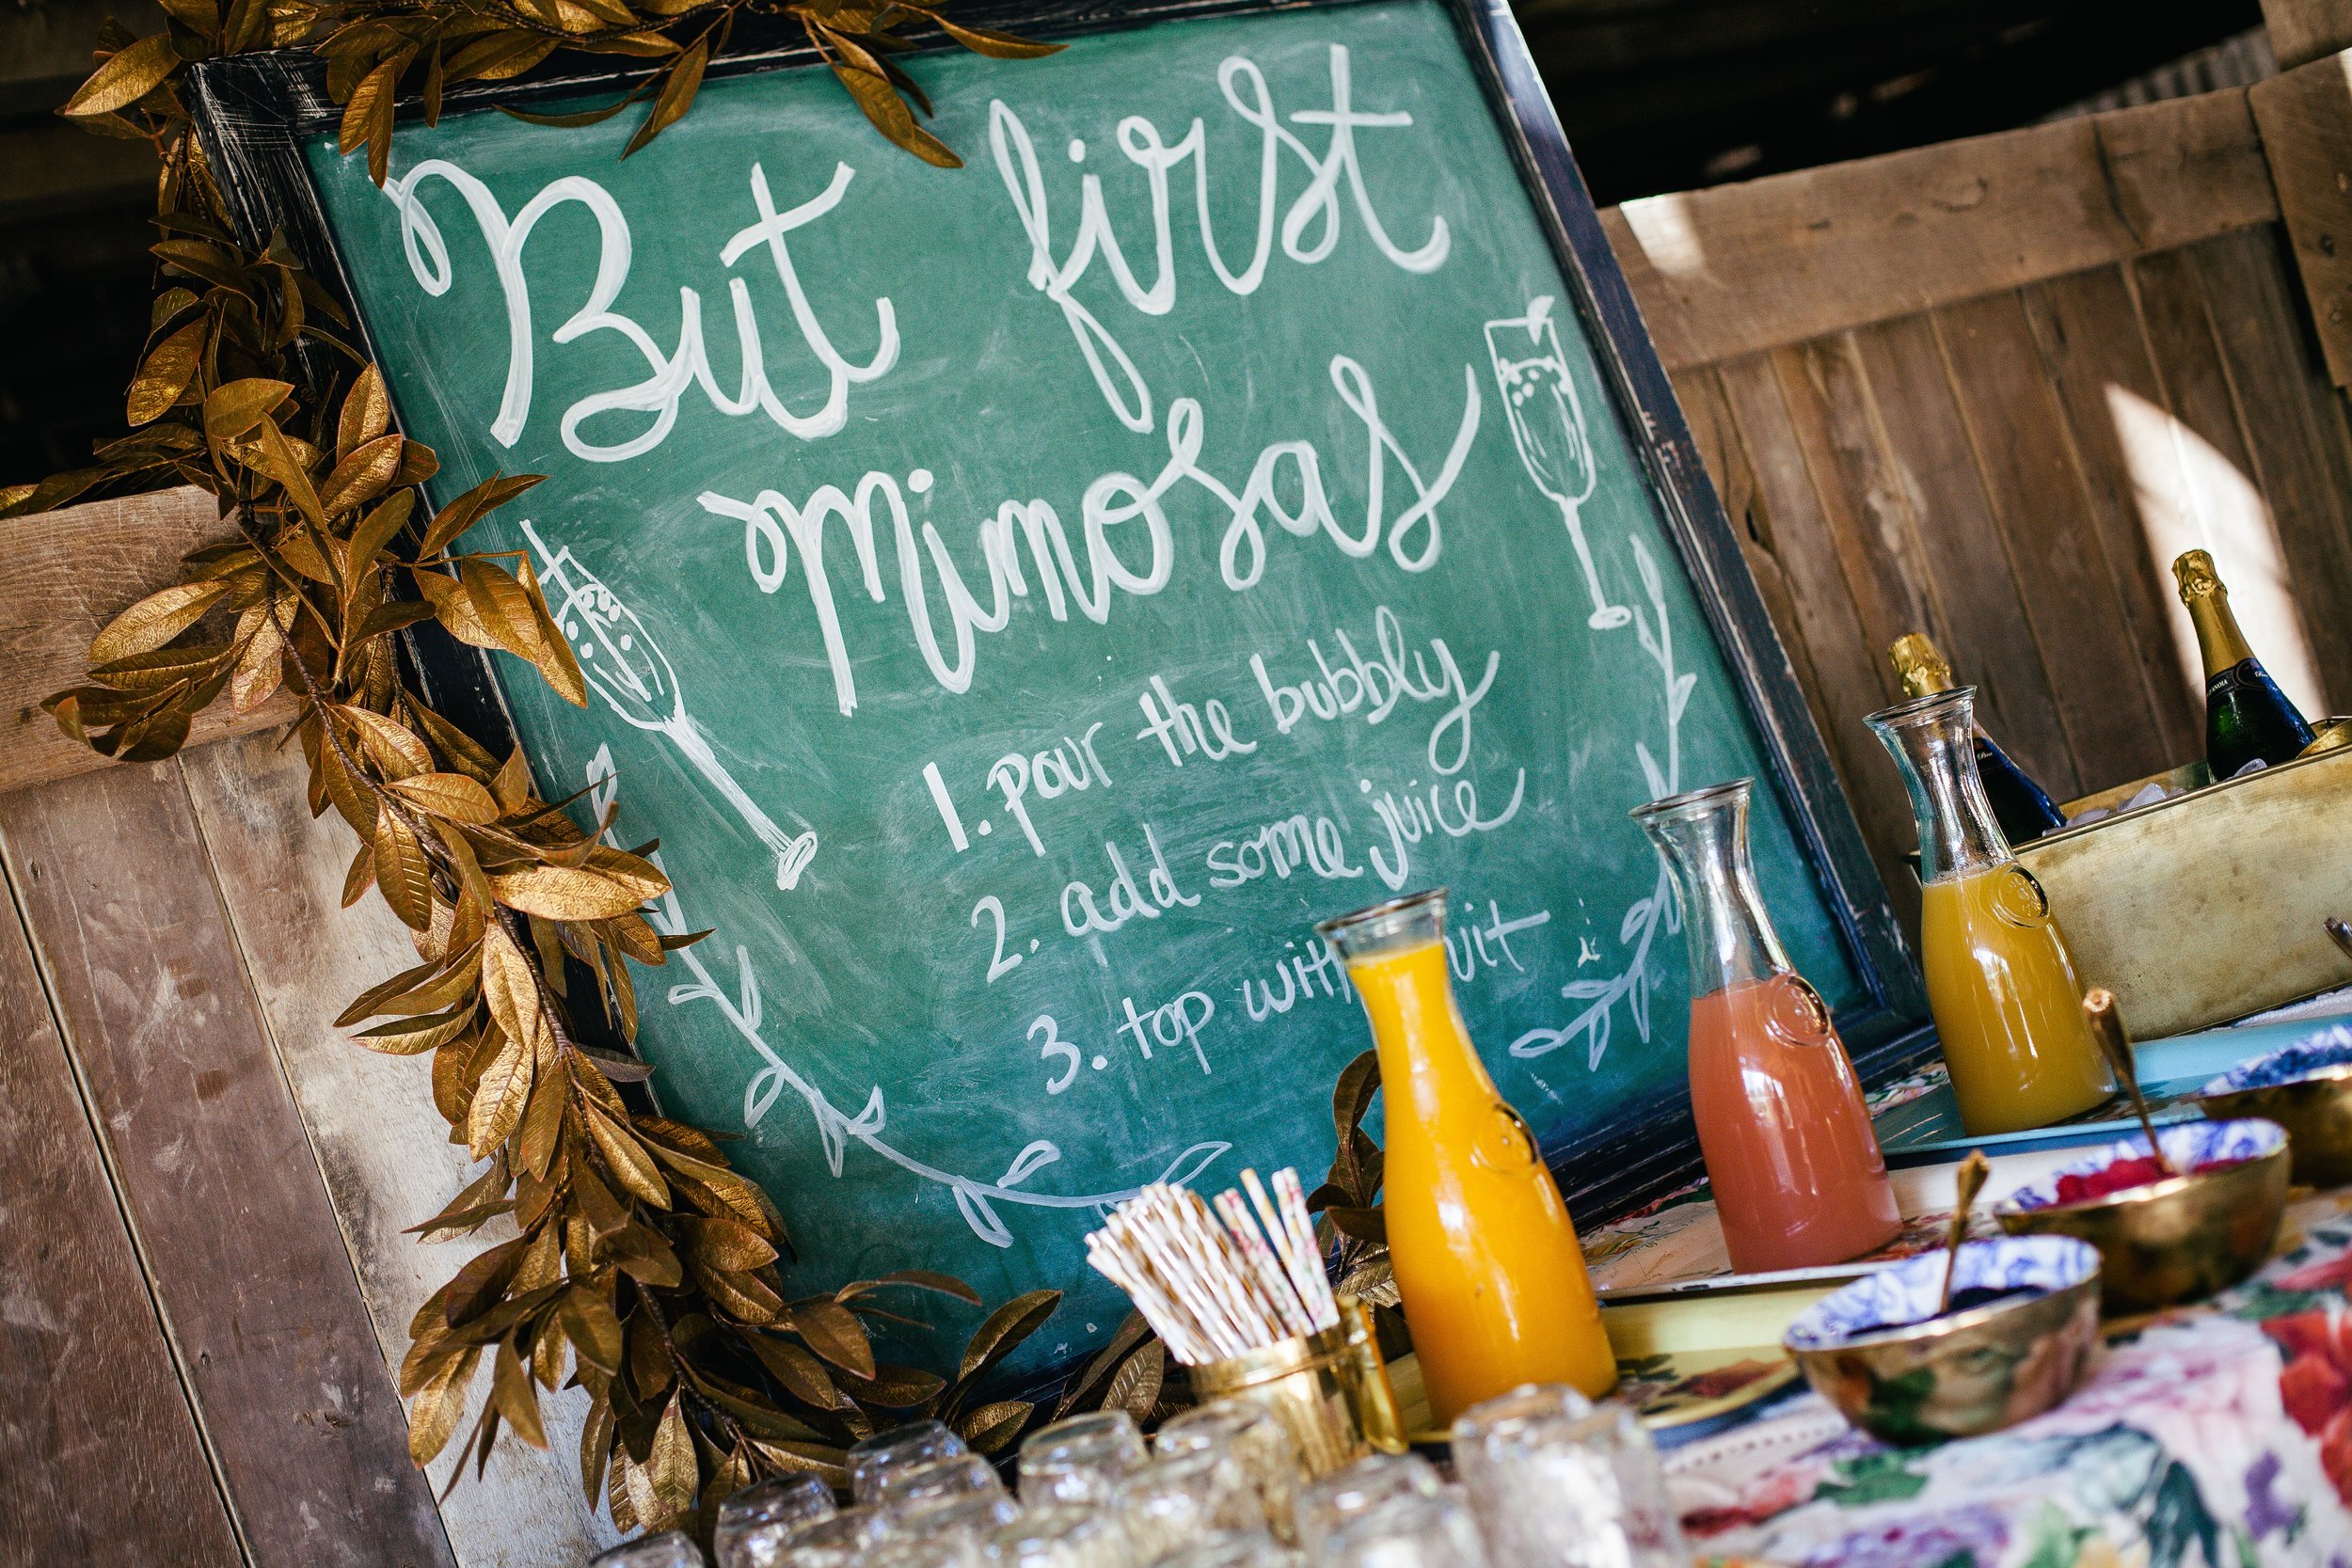 But first
mimosas
1. pour the bubbly
2. add some juice
3. top with